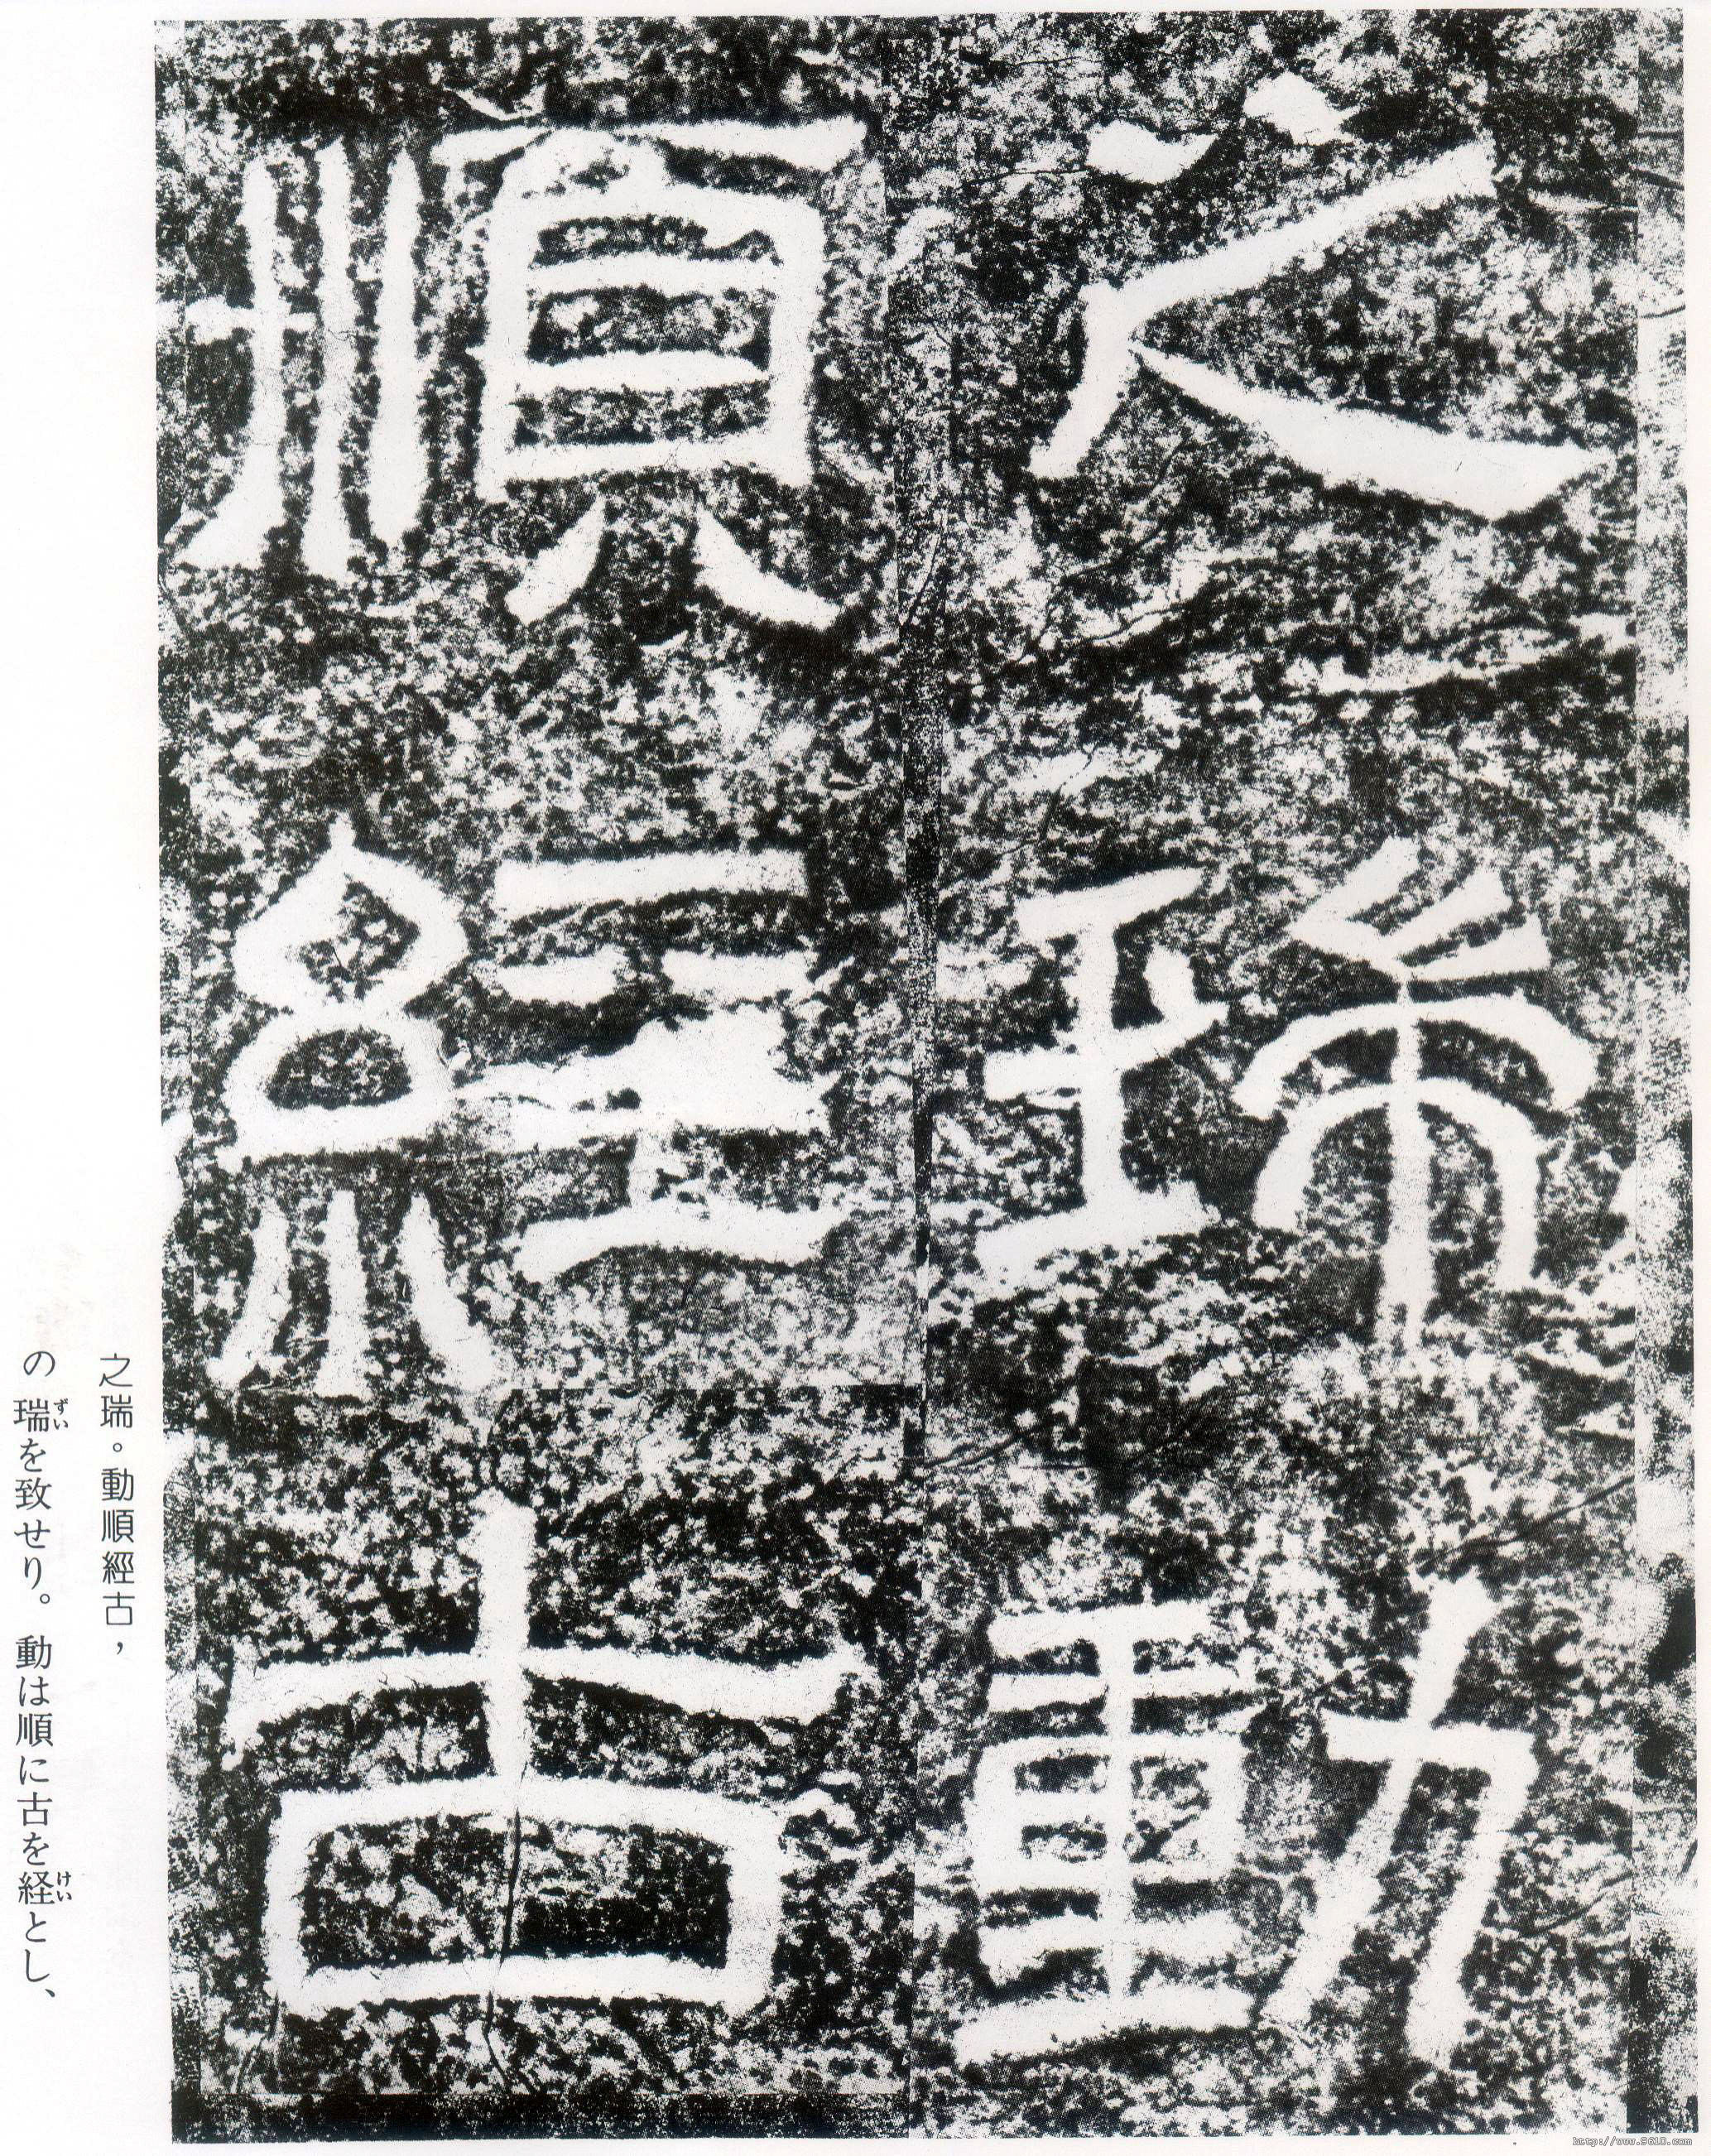 之瑞動
順經古
之瑞。動順經古，
の瑞を致せり。動は順に古を経とし、
ずい
けい
http://www.9610.com